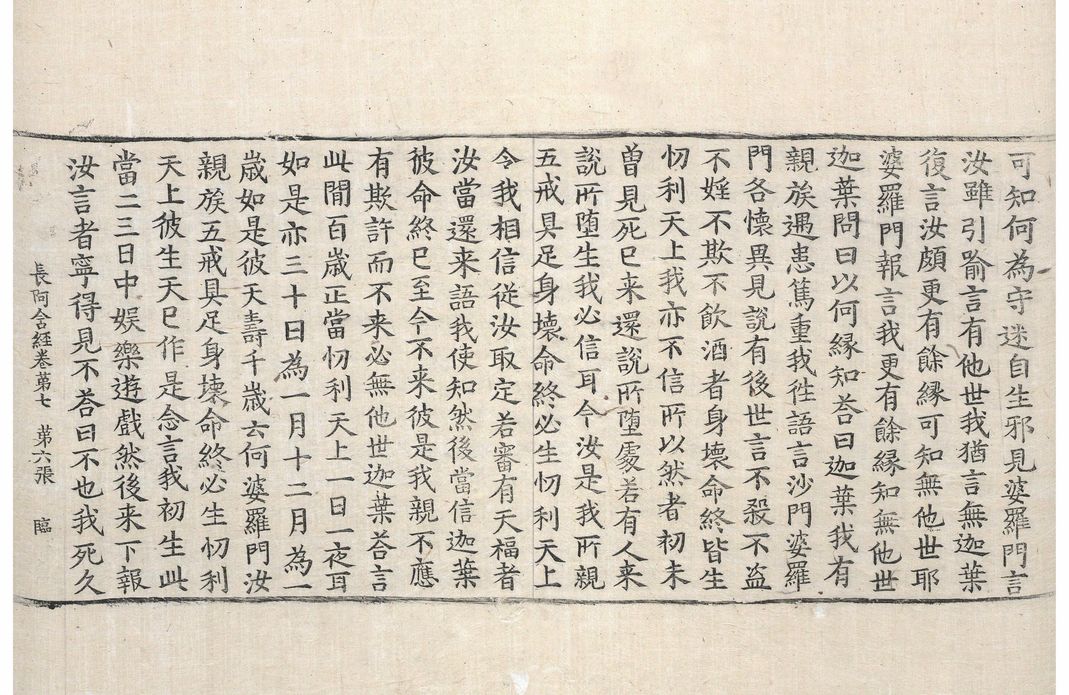 可知何為守迷自生邪見婆羅門言
汝雖引喻言有他世我猶言無迦葉
復言汝頗更有餘縁可知無他世耶
婆羅門報言我更有餘縁知無他世
迦葉問曰以何縁知荅曰迦葉我有
親族遇患篤重我徃語言沙門婆羅
門各懷異見說有後世言不殺不盗
不婬不欺不飲酒者身壞命終皆生
忉利天上我亦不信所以然者初未
曽見死已来還說所墮處若有人来
說所墮生我必信耳今汝是我所親
五戒具足身壞命終必生忉利天上
令我相信從汝取定若審有天福者
汝當還来語我使知然後當信迦葉
彼命終已至今不来彼是我親不應
有欺許而不来必無他世迦葉荅言
此閒百歳正當忉利天上一日一夜耳
如是亦三十日為一月十二月為一
歳如是彼天壽千歳云何婆羅門汝
親族五戒具足身壞命終必生忉利
天上彼生天已作是念言我初生此
當二三日中娯樂遊戲然後来下報
汝言者寧得見不荅曰不也我死久
長阿含經巻第七 第六張 臨